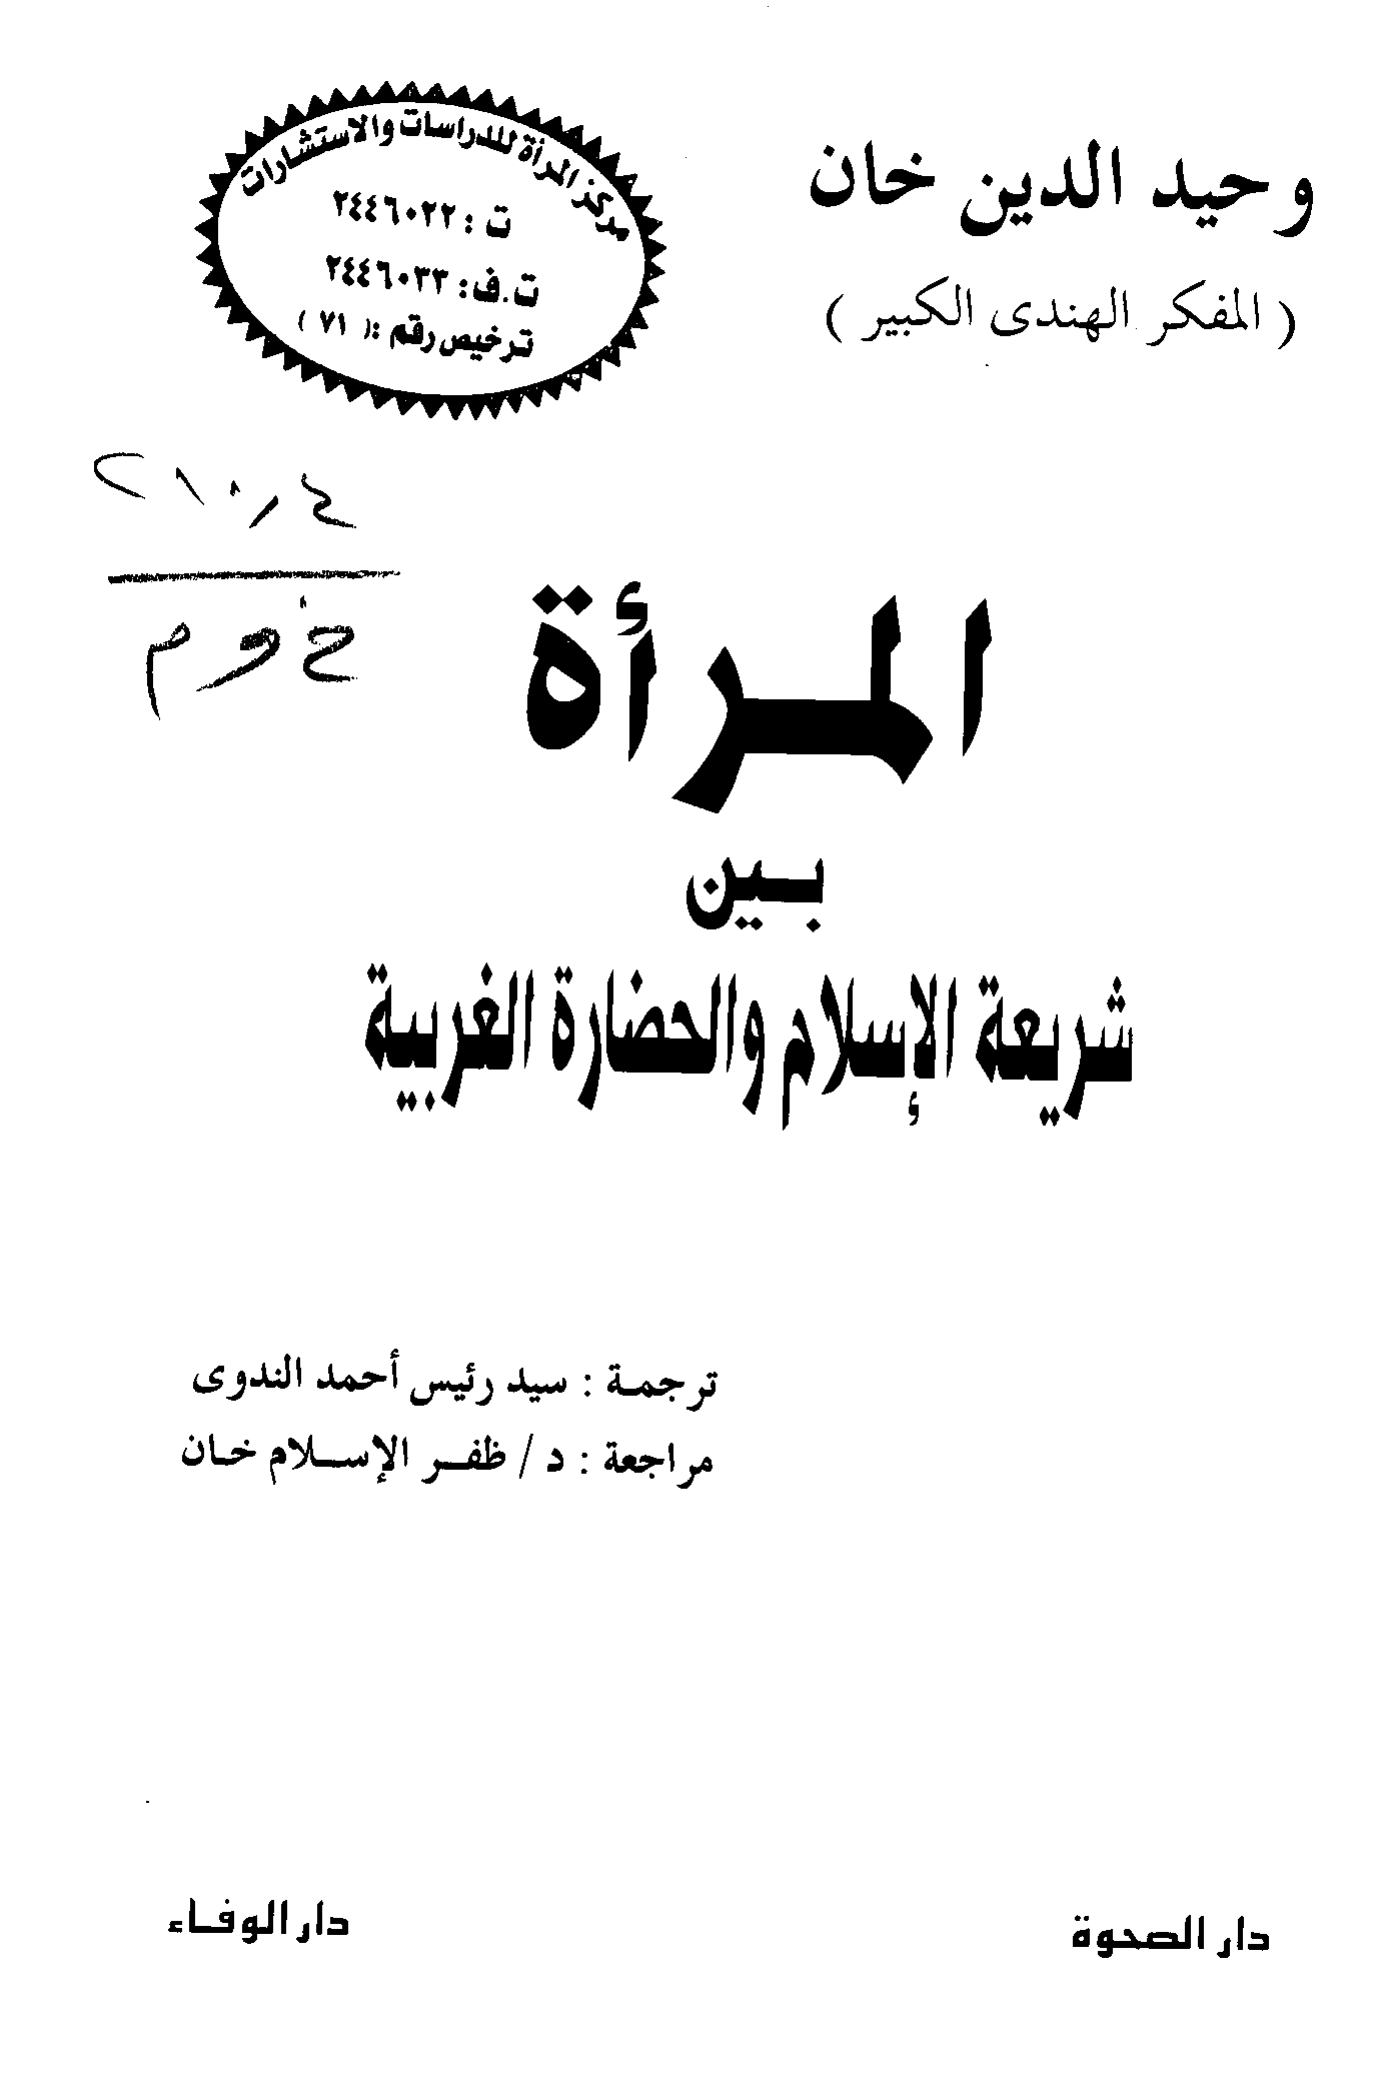 وحيد الدين خان
( المفكر الهندى الكبير )
مركز المرأة للدراسات والاستشارات
ت : ٢٤٤٦٠٢٢
ت.ف: ٢٤٤٦٠٣٣
ترخيص رقم :( ٧١ )
٢١٠,٤
خ و م
المرأة
بين
شريعة الإسلام والحضارة الغربية
ترجمة : سيد رئيس أحمد الندوى
مراجعة : د / ظفر الإسلام خان
دار الصحوة
دار الوفاء